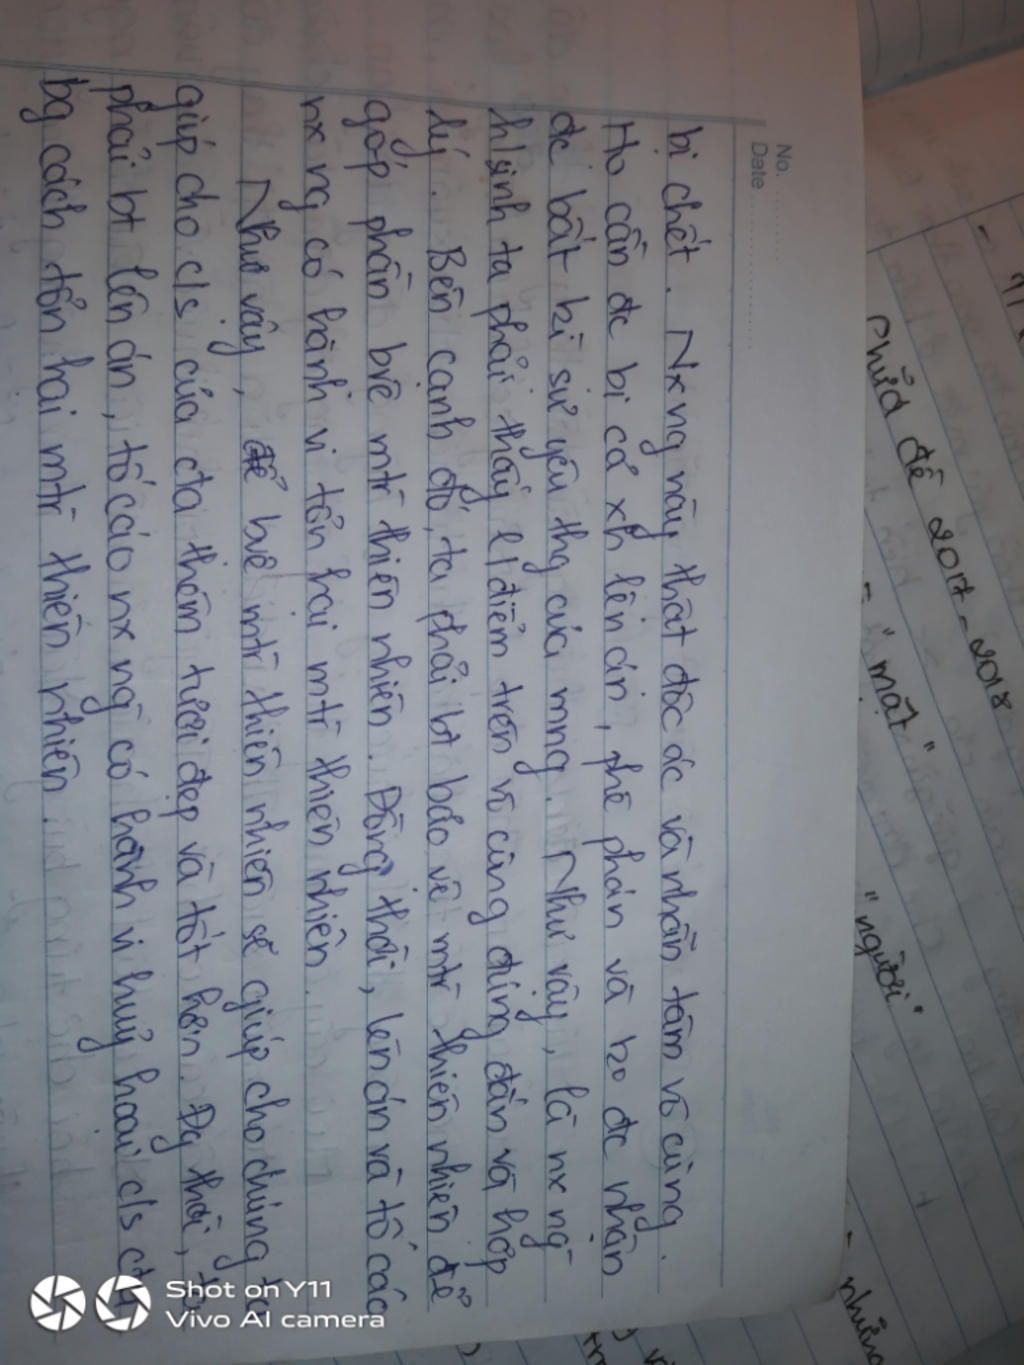 No.
Date
bị chết. Nx ng này thật độc ác và nhẫn tâm vô cùng.
Họ cần đc bị cả xh lên án, phê phán và ko đc nhận
đc bất kì sự yêu thg của mng. Như vậy, là nx ng
h/sinh ta phải thấy q/điểm trên vô cùng đúng đắn và hợp
lý. Bên cạnh đó, ta phải bt bảo vệ mtr thiên nhiên để
góp phần bvệ mtr thiên nhiên. Đồng thời, lên án và tố cáo
nx ng có hành vi tổn hại mtr thiên nhiên.
Như vậy, để bvệ mtr thiên nhiên sẽ giúp cho chúng ta
giúp cho c/s của cta thêm tươi đẹp và tốt hơn. Đg thời, ta
phải bt lên án, tố cáo nx ng có hành vi huỷ hoại c/s cta
bg cách tổn hại mtr thiên nhiên.
Chữa đề 2017-2018
- "mật" "người"
- những
Shot on Y11
Vivo AI camera